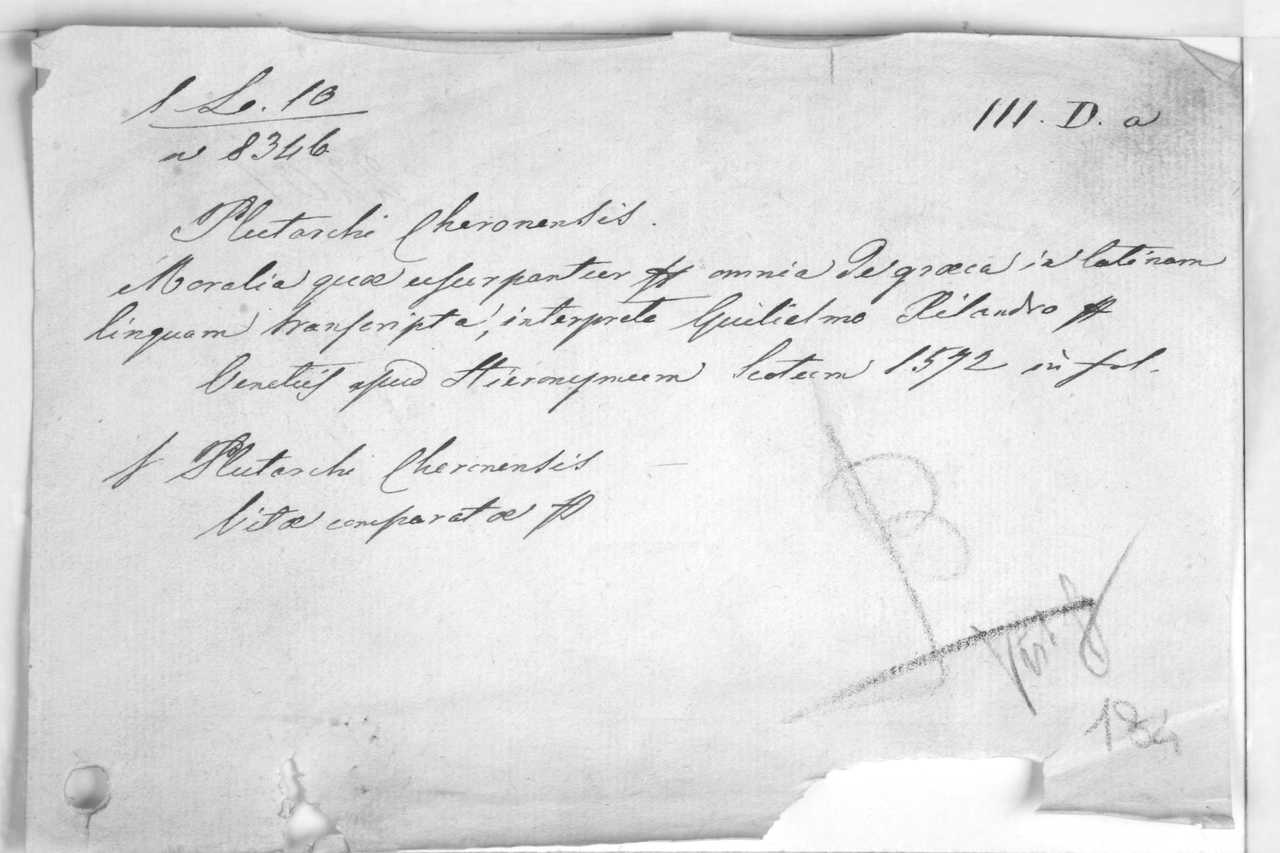 1 Le. 10
III. D. a
n 8346
Plutarchi Cheronensis.
Moralia quæ usurpantur omnia de græca in latinam
linguam transcripta, interprete Guilielmo Xilandro
Venetiis apud Hieronymum Scotum 1572 in fol.
Plutarchi Cheronensis
Vitæ comparatæ
B
184